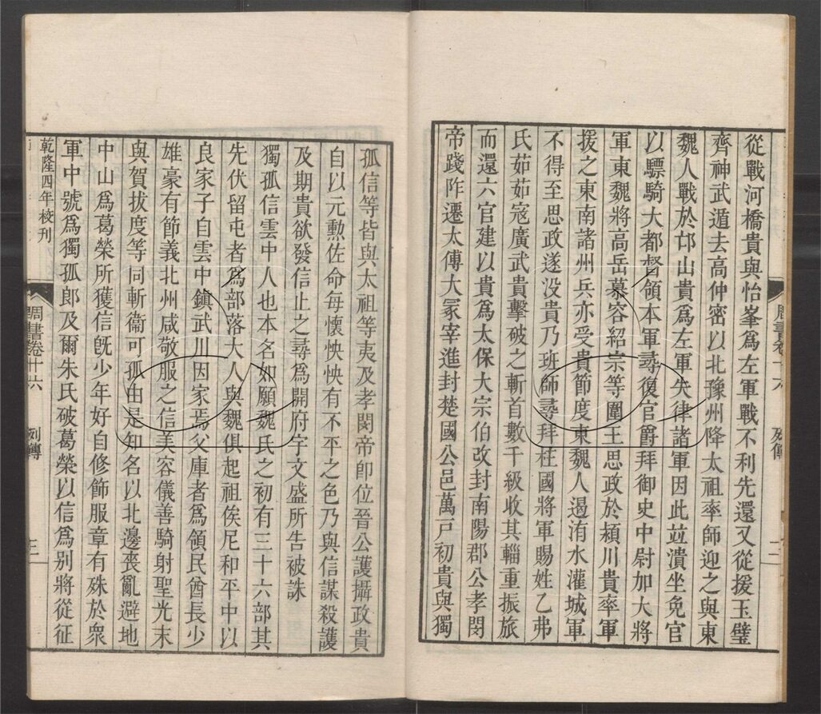 從戰河橋貴與怡峯爲左軍戰不利先還又從援玉壁
齊神武遁去高仲密以北豫州降太祖率師迎之與東
魏人戰於邙山貴爲左軍失律諸軍因此竝潰坐免官
以驃騎大都督領本軍尋復官爵拜御史中尉加大將
軍東魏將高岳慕容紹宗等圍王思政於潁川貴率軍
援之東南諸州兵亦受貴節度東魏人遏洧水灌城軍
不得至思政遂没貴乃班師尋拜柱國將軍賜姓乙弗
氏茹茹寇廣武貴擊破之斬首數千級收其輜重振旅
而還六官建以貴爲太保大宗伯改封南陽郡公孝閔
帝踐阼遷太傅大冡宰進封楚國公邑萬戸初貴與獨
周書卷十六 列傳 二
孤信等皆與太祖等夷及孝閔帝卽位晉公護攝政貴
自以元勲佐命每懷怏怏有不平之色乃與信謀殺護
及期貴欲發信止之尋爲開府宇文盛所告被誅
獨孤信雲中人也本名如願魏氏之初有三十六部其
先伏留屯者爲部落大人與魏俱起祖俟尼和平中以
良家子自雲中鎮武川因家焉父庫者爲領民酋長少
雄豪有節義北州咸敬服之信美容儀善騎射聖光末
與賀拔度等同斬衞可孤由是知名以北邊喪亂避地
中山爲葛榮所獲信旣少年好自修飾服章有殊於衆
軍中號爲獨孤郎及爾朱氏破葛榮以信爲别將從征
乾隆四年校刊
周書卷十六 列傳 三